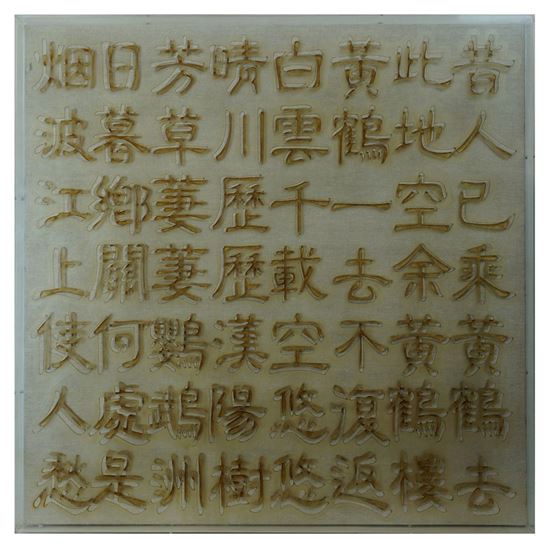 昔人已乘黃鶴去
此地空余黃鶴樓
黃鶴一去不復返
白雲千載空悠悠
晴川歷歷漢陽樹
芳草萋萋鸚鵡洲
日暮鄉關何處是
烟波江上使人愁